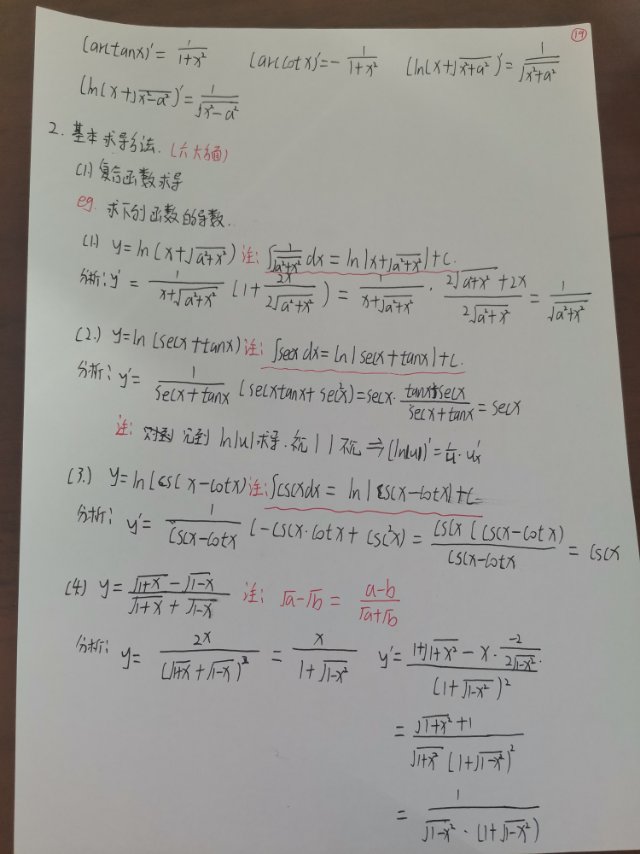 19
(arctanx)′ = 1/(1+x²) (arccotx)′ = - 1/(1+x²) (ln(x+√(x²+a²))′ = 1/√(x²+a²)
(ln(x+√(x²-a²))′ = 1/√(x²-a²)
2. 基本求导方法.(六大方面)
(1) 复合函数求导
eg. 求下列函数的导数.
(1) y=ln(x+√(a²+x²)) 注: ∫1/√(a²+x²) dx = ln|x+√(a²+x²)|+C.
分析: y′ = 1/(x+√(a²+x²)) (1+ 2x/(2√(a²+x²))) = 1/(x+√(a²+x²)) · (2√(a²+x²)+2x)/(2√(a²+x²)) = 1/√(a²+x²)
(2.) y=ln(secx+tanx) 注: ∫secx dx = ln|secx+tanx|+C.
分析: y′ = 1/(secx+tanx) (secxtanx+sec²x) = secx· (tanx+secx)/(secx+tanx) = secx
注: ln|u| 求导. | | ⇒ (ln|u|)′ = 1/u · u′x
(3.) y=ln(cscx-cotx) 注: ∫cscxdx = ln|cscx-cotx|+C
分析: y′ = 1/(cscx-cotx) (-cscx·cotx+csc²x) = cscx(cscx-cotx)/(cscx-cotx) = cscx
(4) y= (√(1+x)-√(1-x))/(√(1+x)+√(1-x)) 注: √a-√b = (a-b)/(√a+√b)
分析: y= 2x/(√(1+x)+√(1-x))² = x/(1+√(1-x²)) y′= (1+√(1+x²) - x· -2/(2√(1-x²)))/(1+√(1-x²))²
= (√(1+x²)+1)/(√(1+x²)(1+√(1-x²))²)
= 1/(√(1-x²)·(1+√(1-x²)))